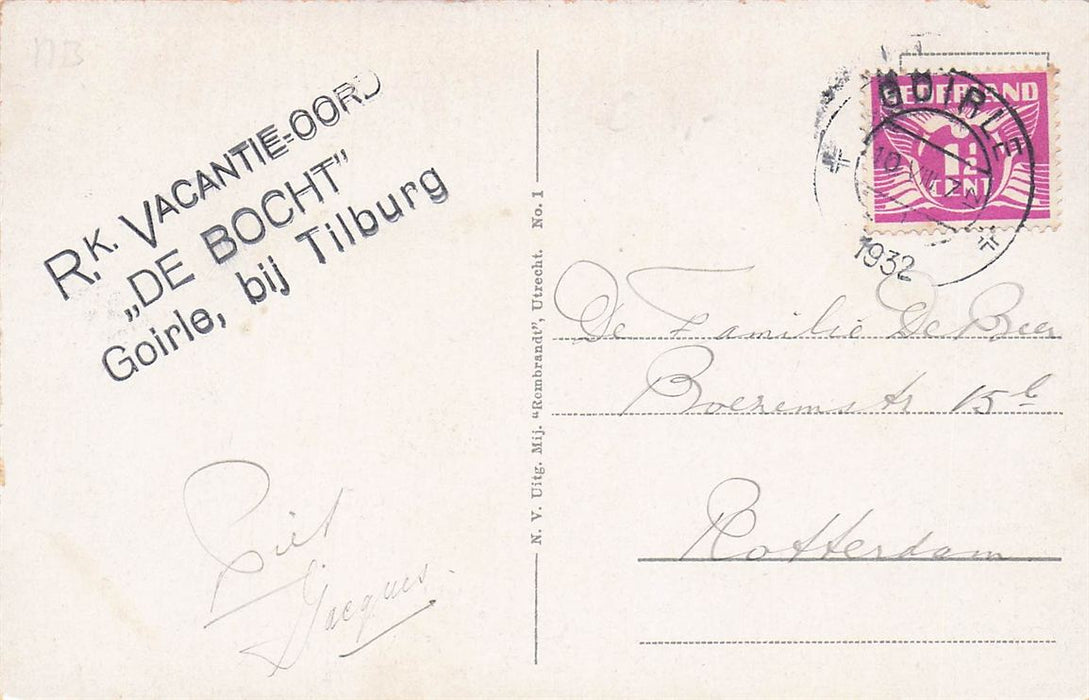 R.K. VACANTIE-OORD
„DE BOCHT”
Goirle, bij Tilburg
Piet
Jacques.
N. V. Uitg. Mij. “Rembrandt”, Utrecht. No. 1
NEDERLAND
1½
CENT
GOIRLE
10 VIII
1932
De Familie De Beer
Boezemstr 15b
Rotterdam